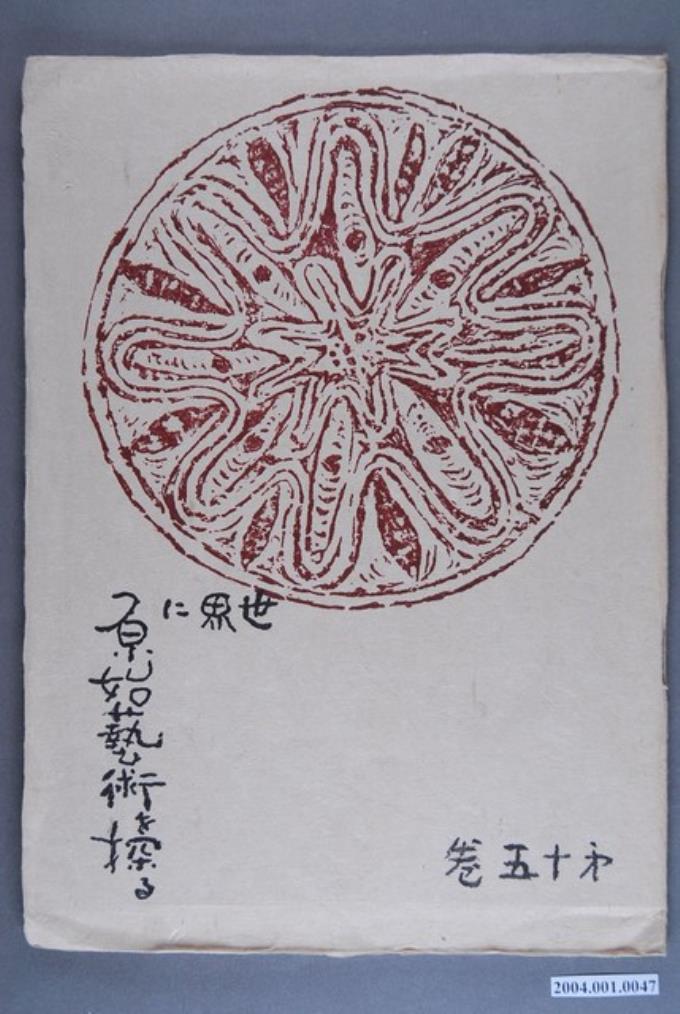 世界に
原始藝術を探る
第十五卷
2004.001.0047